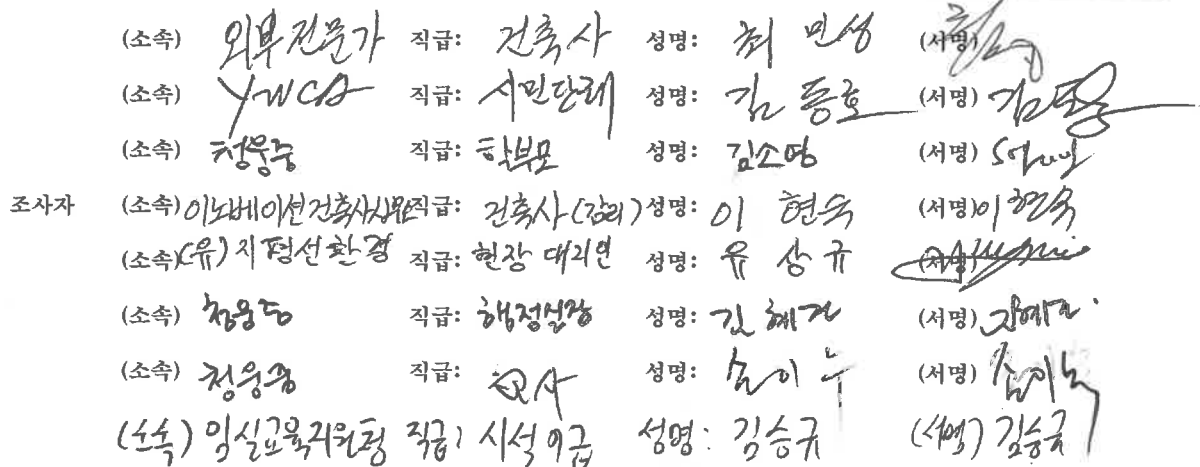 (소속) 외부전문가 직급: 건축사 성명: 최 민성 (서명)
(소속) YWCA 직급: 시민단체 성명: 김 동호 (서명) 김동호
(소속) 청웅중 직급: 학부모 성명: 김소영 (서명)
조사자 (소속) 이노베이션건축사사무소 직급: 건축사(감리) 성명: 이 현숙 (서명) 이현숙
(소속) (유)지평선환경 직급: 현장 대리인 성명: 유 상규 (서명)
(소속) 청웅중 직급: 행정실장 성명: 김혜진 (서명) 김혜진
(소속) 청웅중 직급: 성명: (서명)
(소속) 임실교육지원청 직급: 성명: 김승규 (서명) 김승규